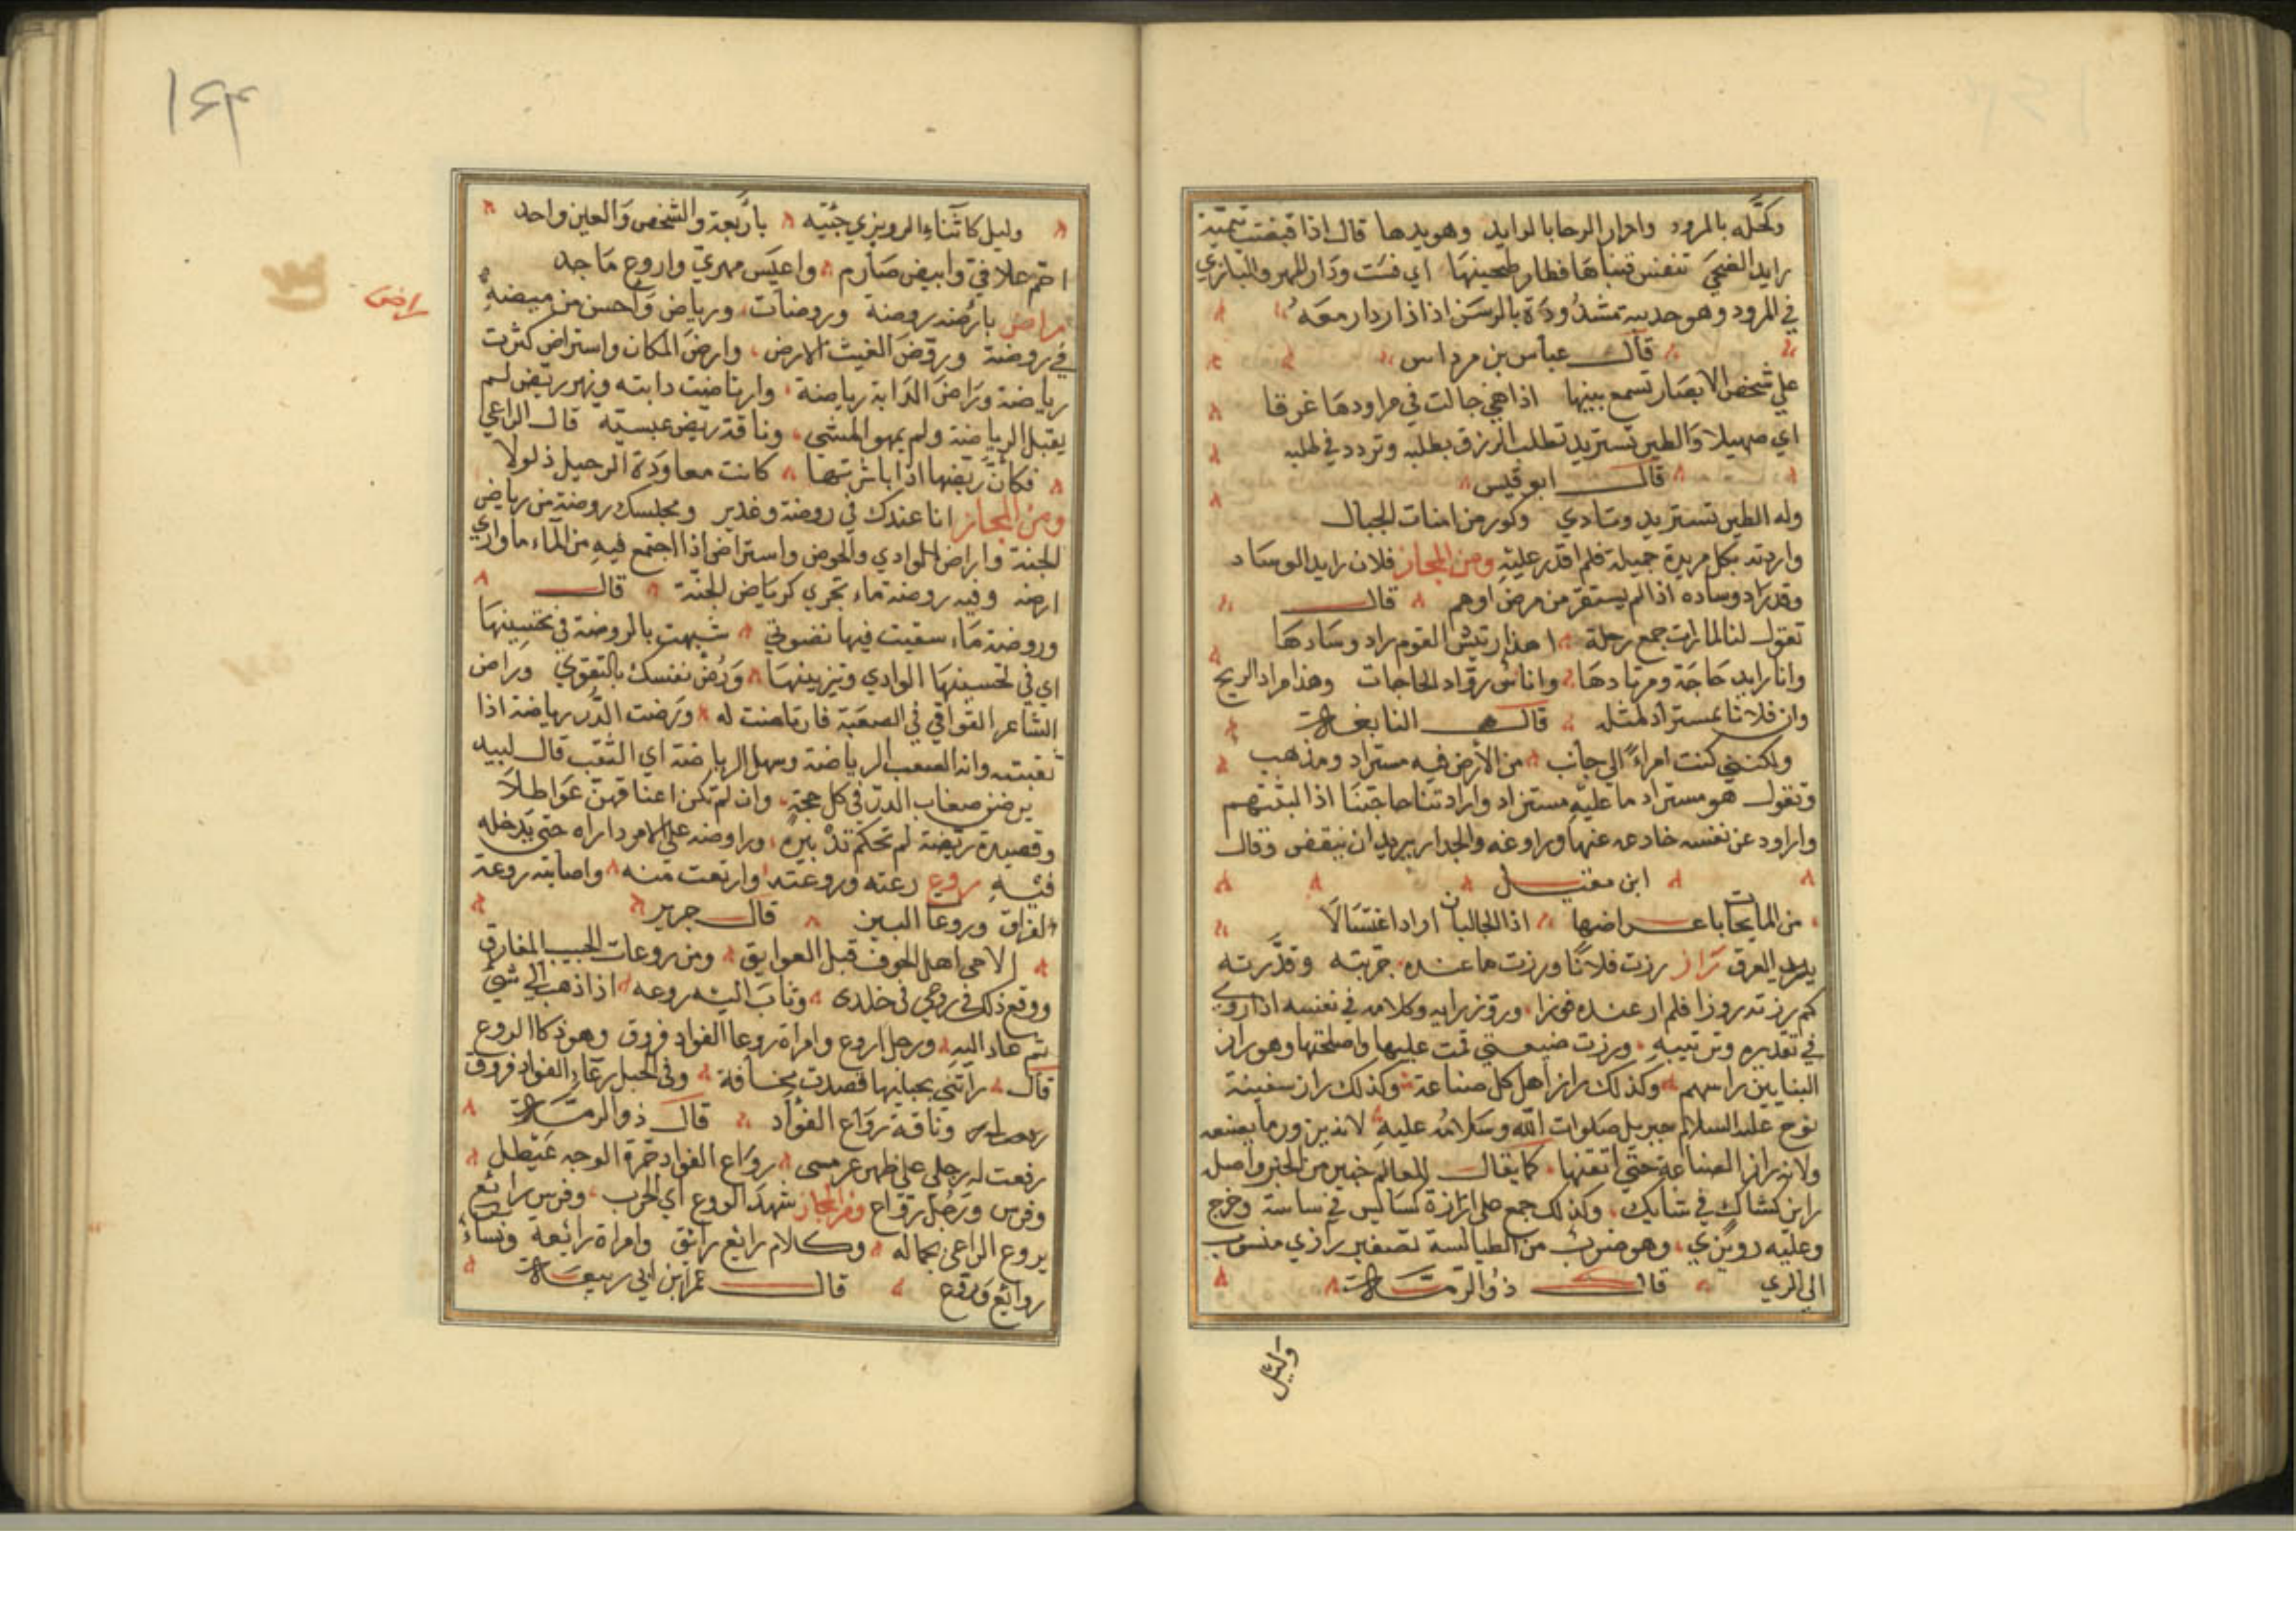 وكحّله بالمرود وادار الرحا بالرايد وهو يدها قال اذا قبضت تيمية
رايد الضحى تنفس قنباها فطار طحينها اي فست ودار المهر والبازي
في المرود وهو حديدة تشد ودة بالرسن اذا دار دار معه
قال عباس بن مرداس
على شخص الابصار تسمع بينها اذا هي جالت في مراودها غرقا
اي صهيلا والطير تستريد تطلب الرزق بطلبه وتردد في طلبه
قال ابو قيس
وله الطير تستريد وتنادي وكور من امنات الجبال
واردته بكل مريدة جميلة فلم اقدر عليه ومن المجاز فلان رايد الوساد
وقد راد وساده اذا لم يستقر من مرض او هم قال
تقول لنا لما رات جمع رحلة اهذا رئيس القوم راد وسادها
وانا رايد حاجة ومرتادها واناس رواد الحاجات وهذا مراد الريح
وان فلانا لمستراد لمثله قال النابغة
ولكنني كنت امراءً الي جانب من الأرض فيه مستراد ومذهب
وتقول هو مستراد ما عليه مستزاد وارادتنا حاجتنا اذا لبثتهم
واراود عن نفسه خادعه عنها وراوغه والجدار يريد ان ينقض وقال
ابن مقبل
من المايحات باعراضها اذا الحالبان ارادا اغتسالا
يريد العرق راز رزت فلانا ورزت ما عنده جربته وقدّرته
كم رزته روزا فلم ار عنده فوزا وروز رايه وكلامه في نفسه اذا روي
في تقديره وترتيبه ورزت ضيعتي قمت عليها واصلحتها وهو راز
البنايين راسهم وكذلك راز اهل كل صناعة وكذلك راز سفينة
نوح عليه السلام جبريل صلوات الله وسلامه عليه لانه يروز ما يصنعه
ولانه راز الصناعة حتى اتقنها كما يقال للعالم خبير من الخبر واصل
راز كشاك في شايك وكذلك جمع على رازة كساكيس في ساسة وخرج
وعليه رويزي وهو ضرب من الطيالسة تصغير رازي منسوب
الى الري قال ذو الرمة
وليل
١٤٣
وليل كاثناء الرويزي جبته باربعة والشخص والعين واحد
احم علافي وابيض صارم واعيس مهري واروع ماجد
راض
راض بارضه روضة وروضات ورياض واحسن من بيضة
في روضة وروّض الغيث الارض وارض المكان واستراض كثرت
رياضه وراض الدابة رياضة وارتاضت دابته ومهر ريض لم
يقبل الرياضة ولم يمهر المشي وناقة ريض عبسية قال الراعي
فكأن ريضها اذا باشرتها كانت معاودة الرحيل ذلولا
ومن المجاز انا عندك في روضة وغدير ومجلسك روضة من رياض
الجنة واراض الوادي والحوض واستراض اذا اجتمع فيه من الماء ما واري
ارضه وفيه روضة ماء تجري كرياض الجنة قال
وروضة ماء سقيت فيها نضوتي شبهت بالروضة في تحسينها
اي في تحسينها الوادي وتزيينها ورض نفسك بالتقوي وراض
الشاعر القوافي في الصعبة فارتاضت له ورضت الدر رياضة اذا
ثقبته وانه الصعب الرياضة وسهل الرياضة اي الثقب قال لبيد
يرضن صعاب الدر في كل حجة وان لم تكن اعناقهن عواطلا
وقصيدة ريضة لم تحكم تدبيره وراوضه على الامر داراه حتى يدخله
فيه روع رعته وروعته وارتعت منه واصابته روعة
الفراق وروعات البين قال جرير
الا حى اهل الجوف قبل العوايق ومن روعات الحبيب المفارق
ووقع ذلك في روعي في خلدى وثاب اليه روعه اذا ذهب الي شئ
ثم عاد اليه ورجل اروع وامراة روعا الفواد فروق وهو ذكا الروع
قال راتني بحبليها فصدت مخافة وفي الحبل روعا الفواد فروق
وناقة رواع الفؤاد قال ذو الرمة
رفعت له رحلي على ظهر عرمس رواع الفواد حرة الوجه عيطل
وفرس ورجل رواع ومن المجاز شهد الروع اي الحرب وفرس رائع
يروع الراعي بجماله وكلام رائع رائق وامراة رائعة ونساء
روائع وروع قال عمر ابن ابي ربيعة